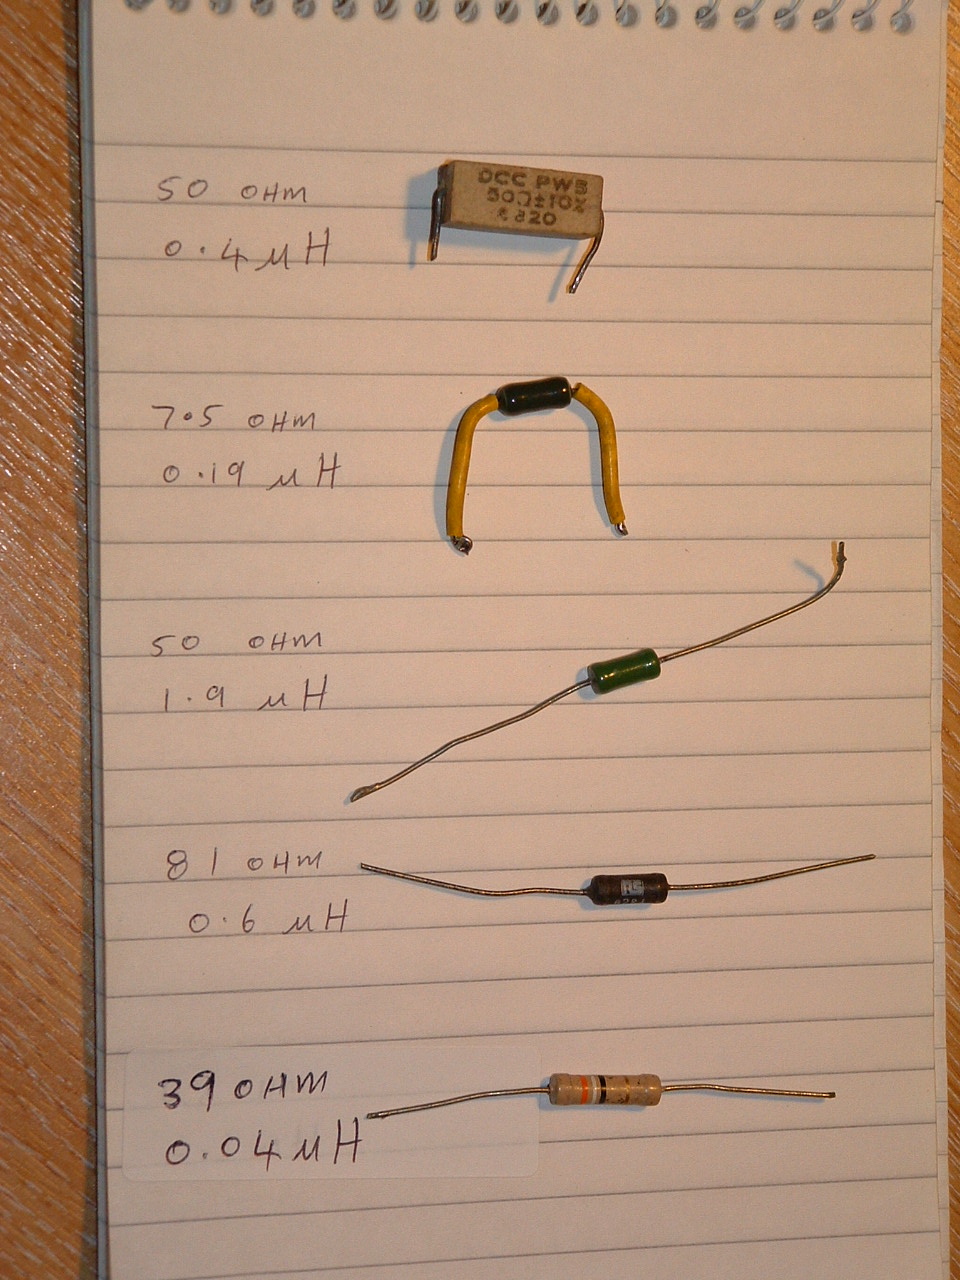 50 OHM
0.4 μH
DCC PWB
50Ω±10%
7.5 OHM
0.19 μH
50 OHM
1.9 μH
81 OHM
0.6 μH
39 OHM
0.04 μH